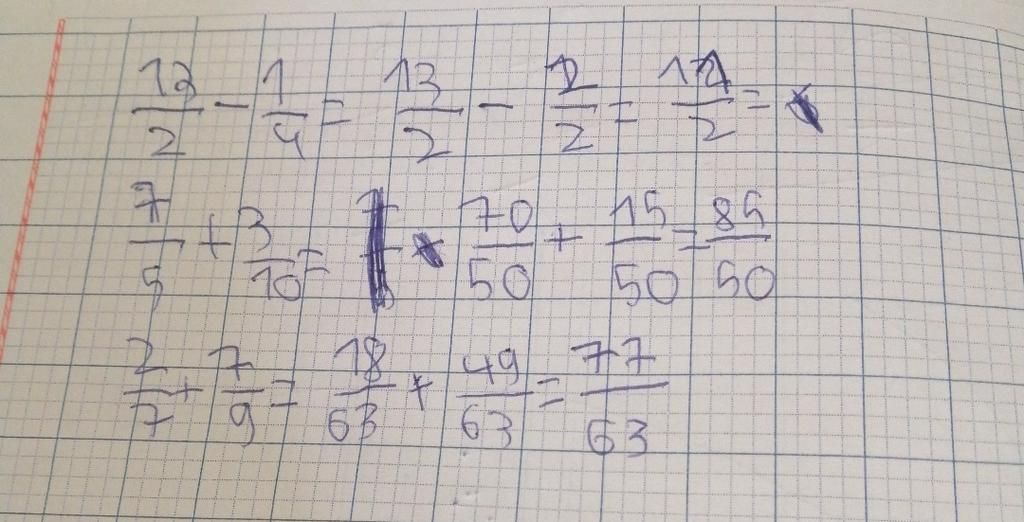 13/2 - 1/4 = 13/2 - 2/2 = 12/2 =
7/5 + 3/10 = 70/50 + 15/50 = 85/50
2/7 + 7/9 = 18/63 + 49/63 = 77/63